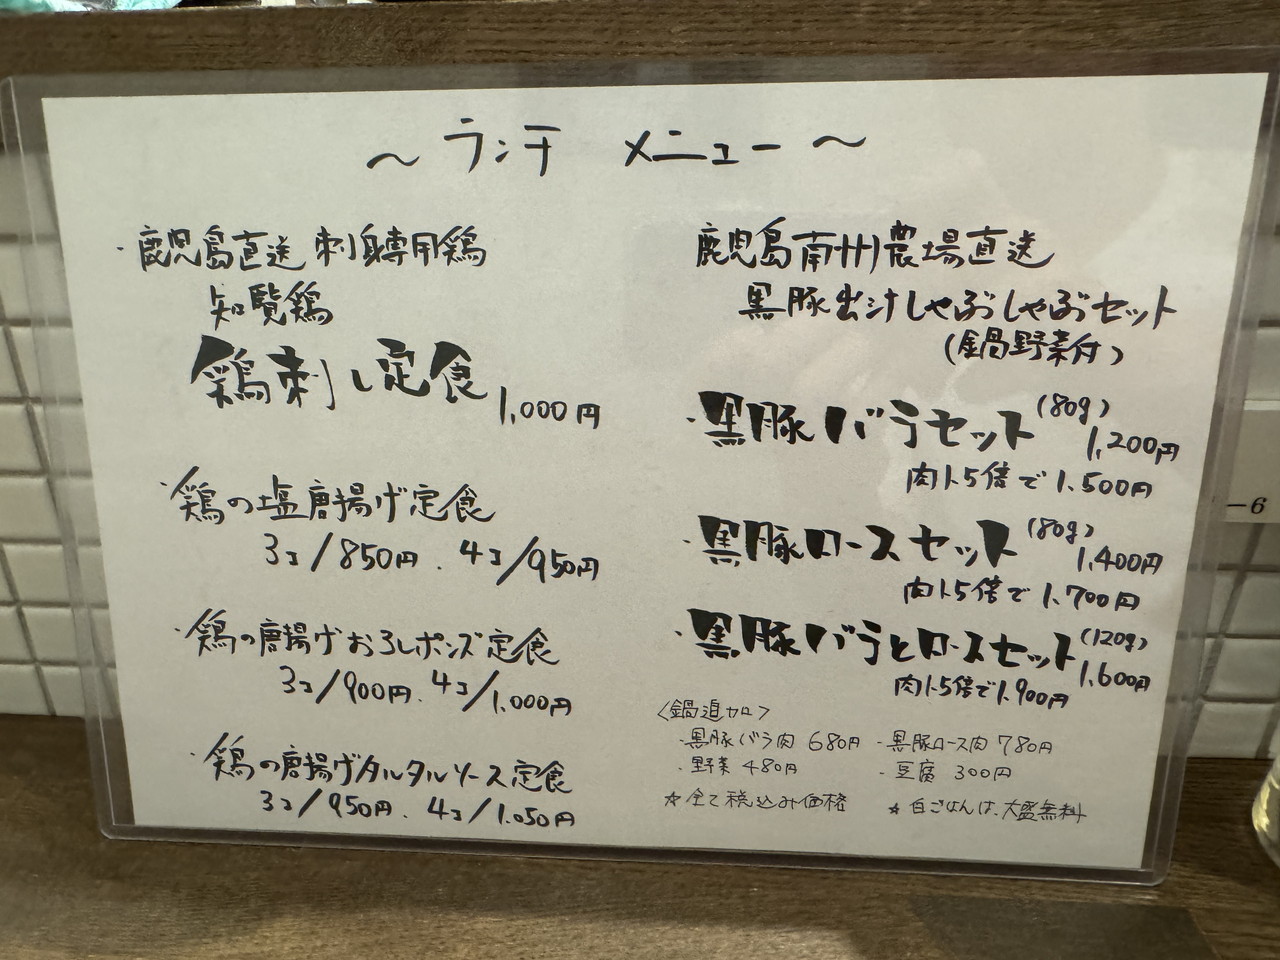 ～ランチ メニュー～
・鹿児島直送 刺身専用鶏
知覧鶏
鶏刺し定食 1,000円
・鶏の塩唐揚げ定食
3コ/850円. 4コ/950円
・鶏の唐揚げおろしポンズ定食
3コ/900円. 4コ/1,000円
・鶏の唐揚げタルタルソース定食
3コ/950円. 4コ/1,050円
鹿児島南州農場直送
黒豚出汁しゃぶしゃぶセット
(鍋野菜付)
・黒豚バラセット (80g) 1,200円
肉1.5倍で 1,500円
・黒豚ロースセット (80g) 1,400円
肉1.5倍で 1,700円
・黒豚バラとロースセット (120g) 1,600円
肉1.5倍で 1,900円
〈鍋追加〉
・黒豚バラ肉 680円 ・黒豚ロース肉 780円
・野菜 480円 ・豆腐 300円
☆全て税込み価格 ☆白ごはんは、大盛無料
-6